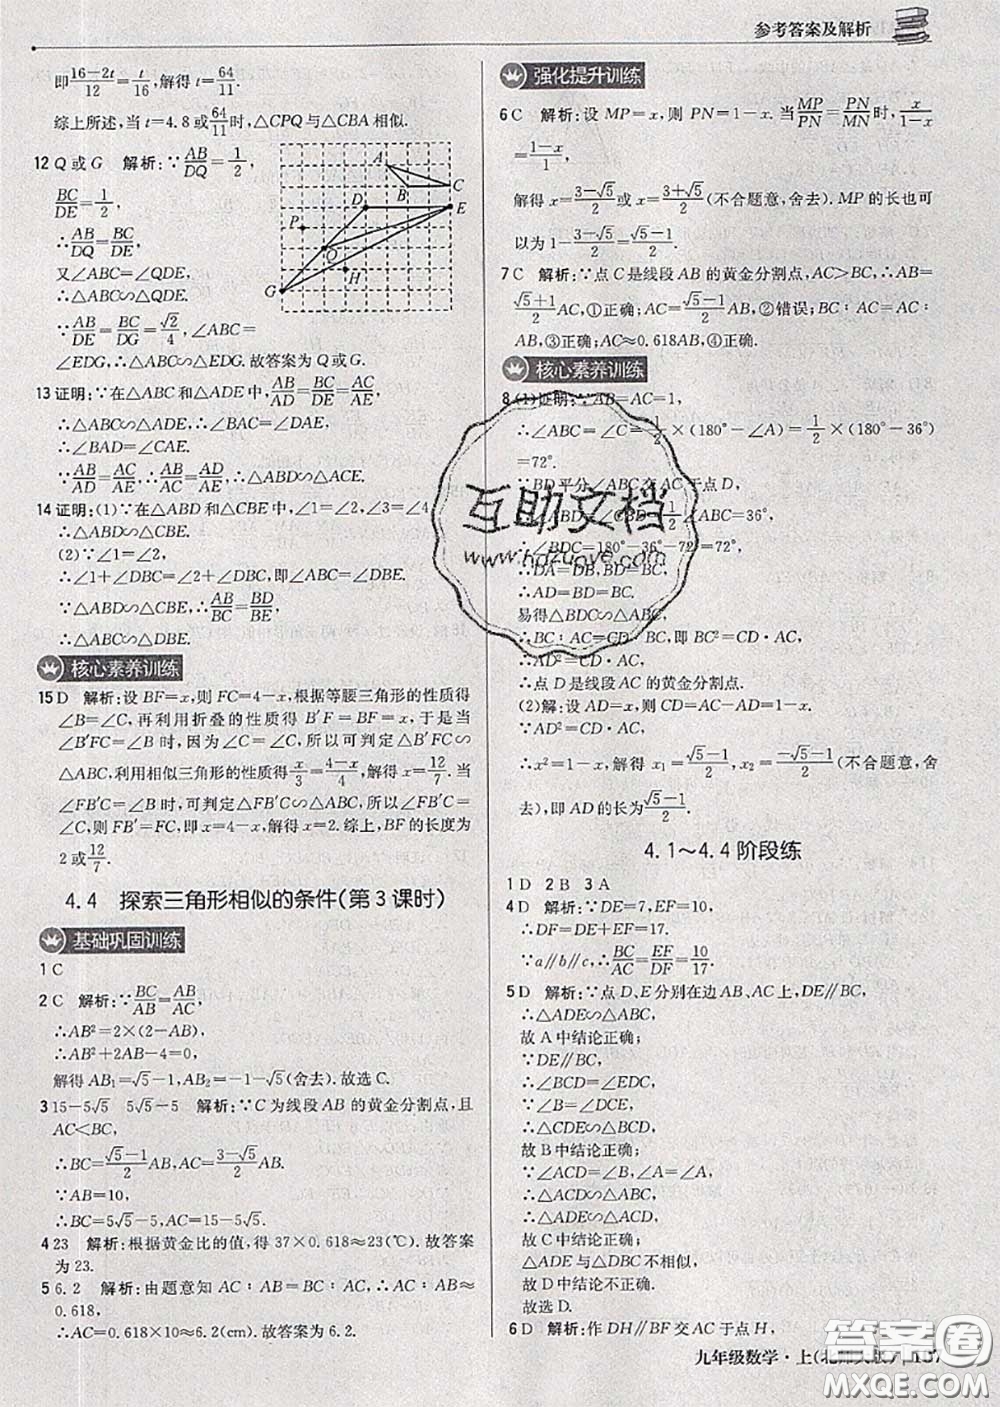 参考答案及解析
即(16-2t)/12=t/16,解得 t=64/11.
综上所述,当 t=4.8或64/11时,△CPQ与△CBA相似.
12 Q或G 解析:∵AB/DQ=1/2,
BC/DE=1/2,
∴AB/DQ=BC/DE,
又∠ABC=∠QDE,
∴△ABC∽△QDE.
∵AB/DE=BC/DG=√2/4,∠ABC=
∠EDG,∴△ABC∽△EDG.故答案为Q或G.
A
B
C
D
E
P
Q
H
G
13 证明:∵在△ABC和△ADE中,AB/AD=BC/DE=AC/AE,
∴△ABC∽△ADE,∴∠BAC=∠DAE,
∴∠BAD=∠CAE.
∵AB/AD=AC/AE,∴AB/AC=AD/AE,∴△ABD∽△ACE.
14 证明:(1)∵在△ABD和△CBE中,∠1=∠2,∠3=∠4,
∴△ABD∽△CBE.
(2)∵∠1=∠2,
∴∠1+∠DBC=∠2+∠DBC,即∠ABC=∠DBE.
∵△ABD∽△CBE,∴AB/BC=BD/BE,
∴△ABC∽△DBE.
核心素养训练
15 D 解析:设BF=x,则FC=4-x,根据等腰三角形的性质得
∠B=∠C,再利用折叠的性质得B′F=BF=x,于是当
∠B′FC=∠B时,因为∠C=∠C,所以可判定△B′FC∽
△ABC,利用相似三角形的性质得x/3=(4-x)/4,解得x=12/7.当
∠FB′C=∠B时,可判定△FB′C∽△ABC,所以∠FB′C=
∠C,则FB′=FC,即x=4-x,解得x=2.综上,BF的长度为
2或12/7.
4.4 探索三角形相似的条件(第3课时)
基础巩固训练
1 C
2 C 解析:∵BC/AB=AB/AC,
∴AB²=2×(2-AB),
∴AB²+2AB-4=0,
解得AB₁=√5-1,AB₂=-1-√5(舍去).故选C.
3 15-5√5 5√5-5 解析:∵C为线段AB的黄金分割点,且
AC<BC,
∴BC=(√5-1)/2AB,AC=(3-√5)/2AB.
∵AB=10,
∴BC=5√5-5,AC=15-5√5.
4 23 解析:根据黄金比的值,得37×0.618≈23(℃).故答案
为23.
5 6.2 解析:由题意知AC∶AB=BC∶AC,∴AC∶AB≈
0.618,
∴AC=0.618×10≈6.2(cm).故答案为6.2.
强化提升训练
6 C 解析:设MP=x,则PN=1-x.当MP/PN=PN/MN时,x/(1-x)
=(1-x)/1,
解得x=(3-√5)/2或x=(3+√5)/2(不合题意,舍去).MP的长也可
以为1-(3-√5)/2=(√5-1)/2.
7 C 解析:∵点C是线段AB的黄金分割点,AC>BC,∴AB=
(√5+1)/2AC,①正确;AC=(√5-1)/2AB,②错误;BC∶AC=AC∶
AB,③正确;AC≈0.618AB,④正确.
核心素养训练
8 (1)证明:∵AB=AC=1,
∴∠ABC=∠C=1/2×(180°-∠A)=1/2×(180°-36°)
=72°.
∵BD平分∠ABC交AC于点D,
∠ABC=36°,
∴∠BDC=180°-36°-72°=72°,
∴DA=DB,BD=BC,
∴AD=BD=BC.
易得△BDC∽△ABC,
∴BC∶AC=CD∶BC,即BC²=CD·AC,
∴AD²=CD·AC,
∴点D是线段AC的黄金分割点.
(2)解:设AD=x,则CD=AC-AD=1-x.
∵AD²=CD·AC,
∴x²=1-x,解得x₁=(√5-1)/2,x₂=(-√5-1)/2(不合题意,舍
去),即AD的长为(√5-1)/2.
4.1~4.4阶段练
1 D 2 B 3 A
4 D 解析:∵DE=7,EF=10,
∴DF=DE+EF=17.
∵a∥b∥c,∴BC/AC=EF/DF=10/17.
5 D 解析:∵点D、E分别在边AB、AC上,DE∥BC,
∴△ADE∽△ABC,
故A中结论正确;
∵DE∥BC,
∴∠BCD=∠CDE,
∵∠ABC=∠DCE,
∴△CDE∽△BCD,
故B中结论正确;
∵∠ACD=∠B,∠A=∠A,
∴△ACD∽△ABC,
故C中结论正确;
△ADE与△DBC不一定相似,
故D中结论不正确.
故选D.
6 D 解析:作DH∥BF交AC于点H,
九年级数学·上(北师大版)
互助文档
www.hdzuoye.com
答案圈
MXQE.COM